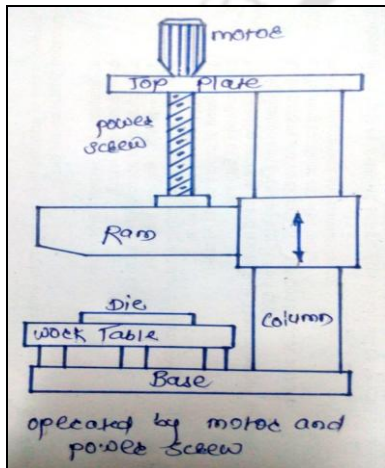 motor
Top Plate
power
screw
Ram
Die
Work Table
Column
Base
operated by motor and
power screw